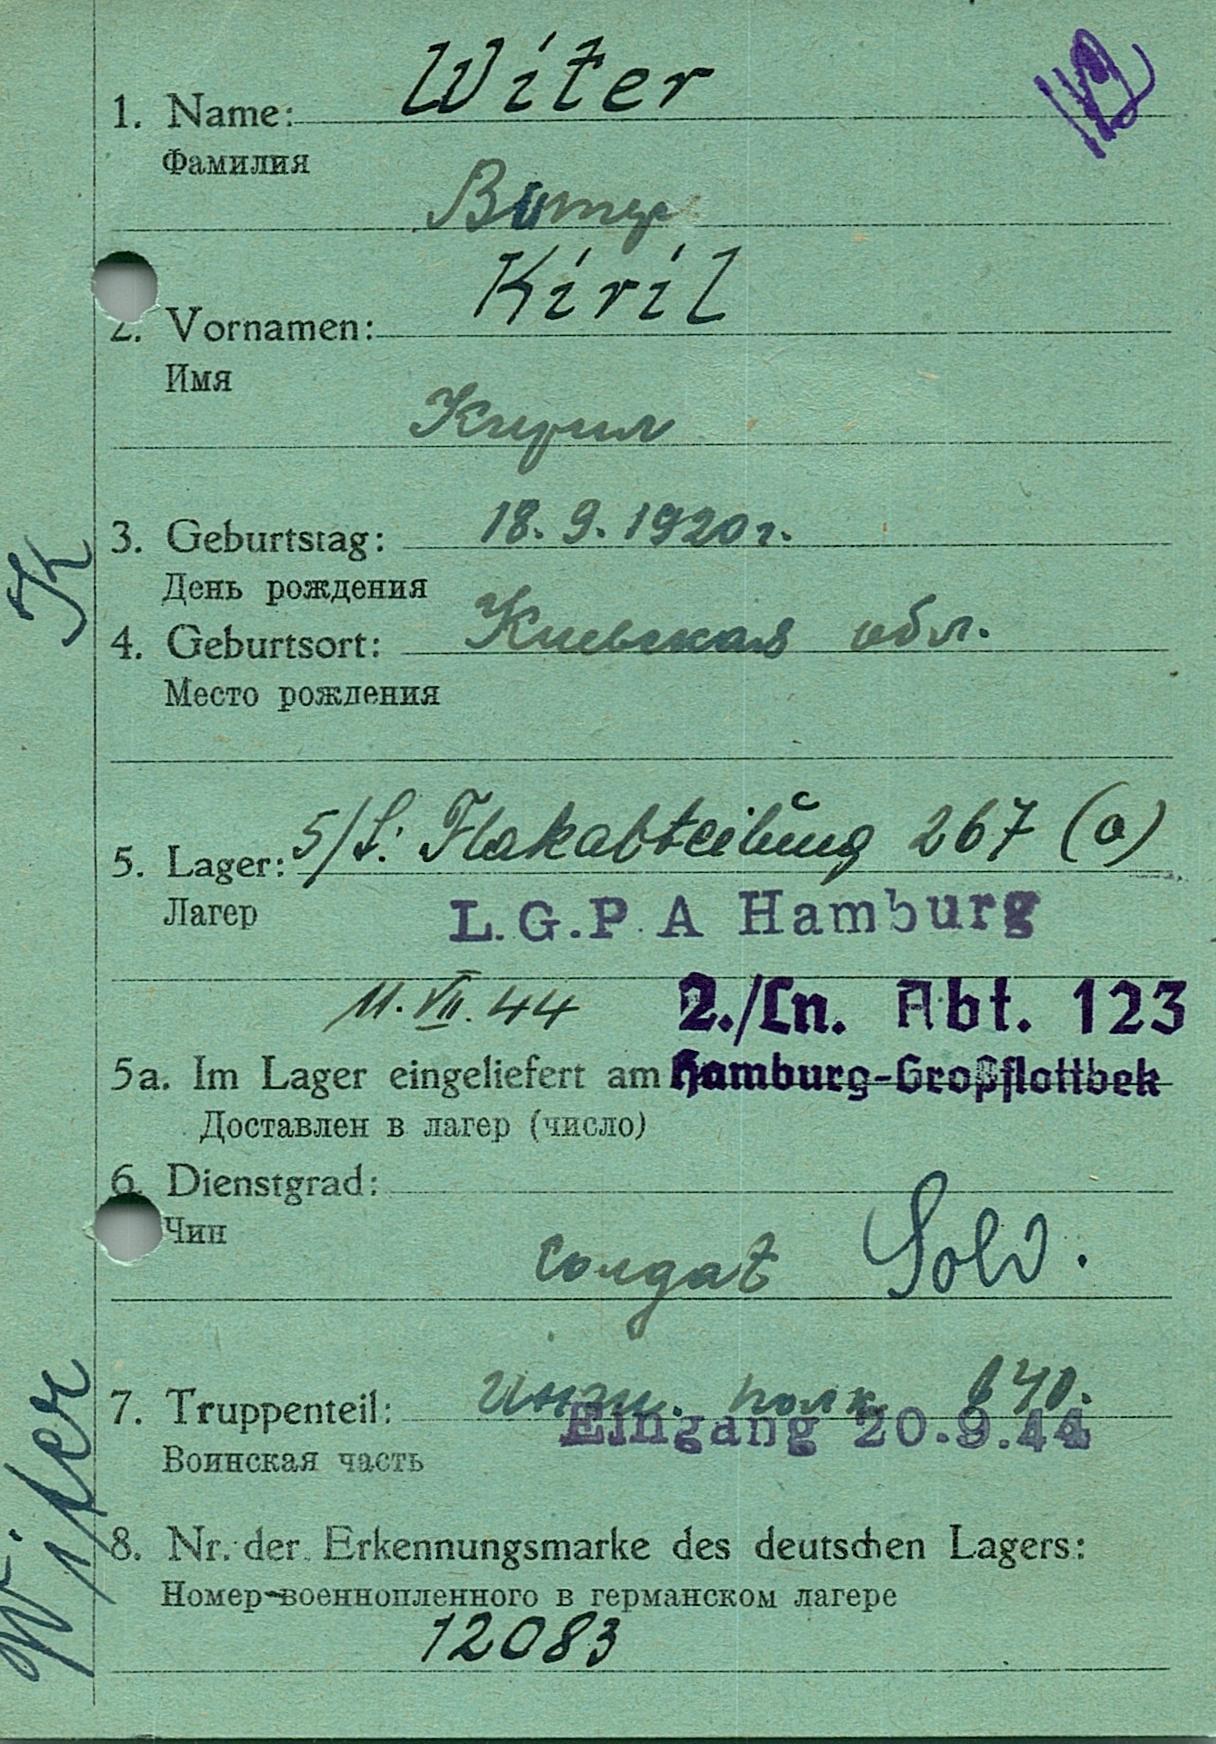 1. Name: Witer
Фамилия
Витер
2. Vornamen: Kiril
Имя
Кирил
3. Geburtstag: 18.9.1920г.
День рождения
4. Geburtsort: Киевская обл.
Место рождения
5. Lager: 5/s. Flakabteilung 267 (o)
Лагер
L.G.P.A Hamburg
11.VII.44 2./Ln. Abt. 123
5a. Im Lager eingeliefert am Hamburg-Großflottbek
Доставлен в лагер (число)
6. Dienstgrad:
Чин
солдат Sold.
7. Truppenteil: полк 640.
Eingang 20.9.44
Воинская часть
8. Nr. der Erkennungsmarke des deutschen Lagers:
Номер-военнопленного в германском лагере
12083
Witer K